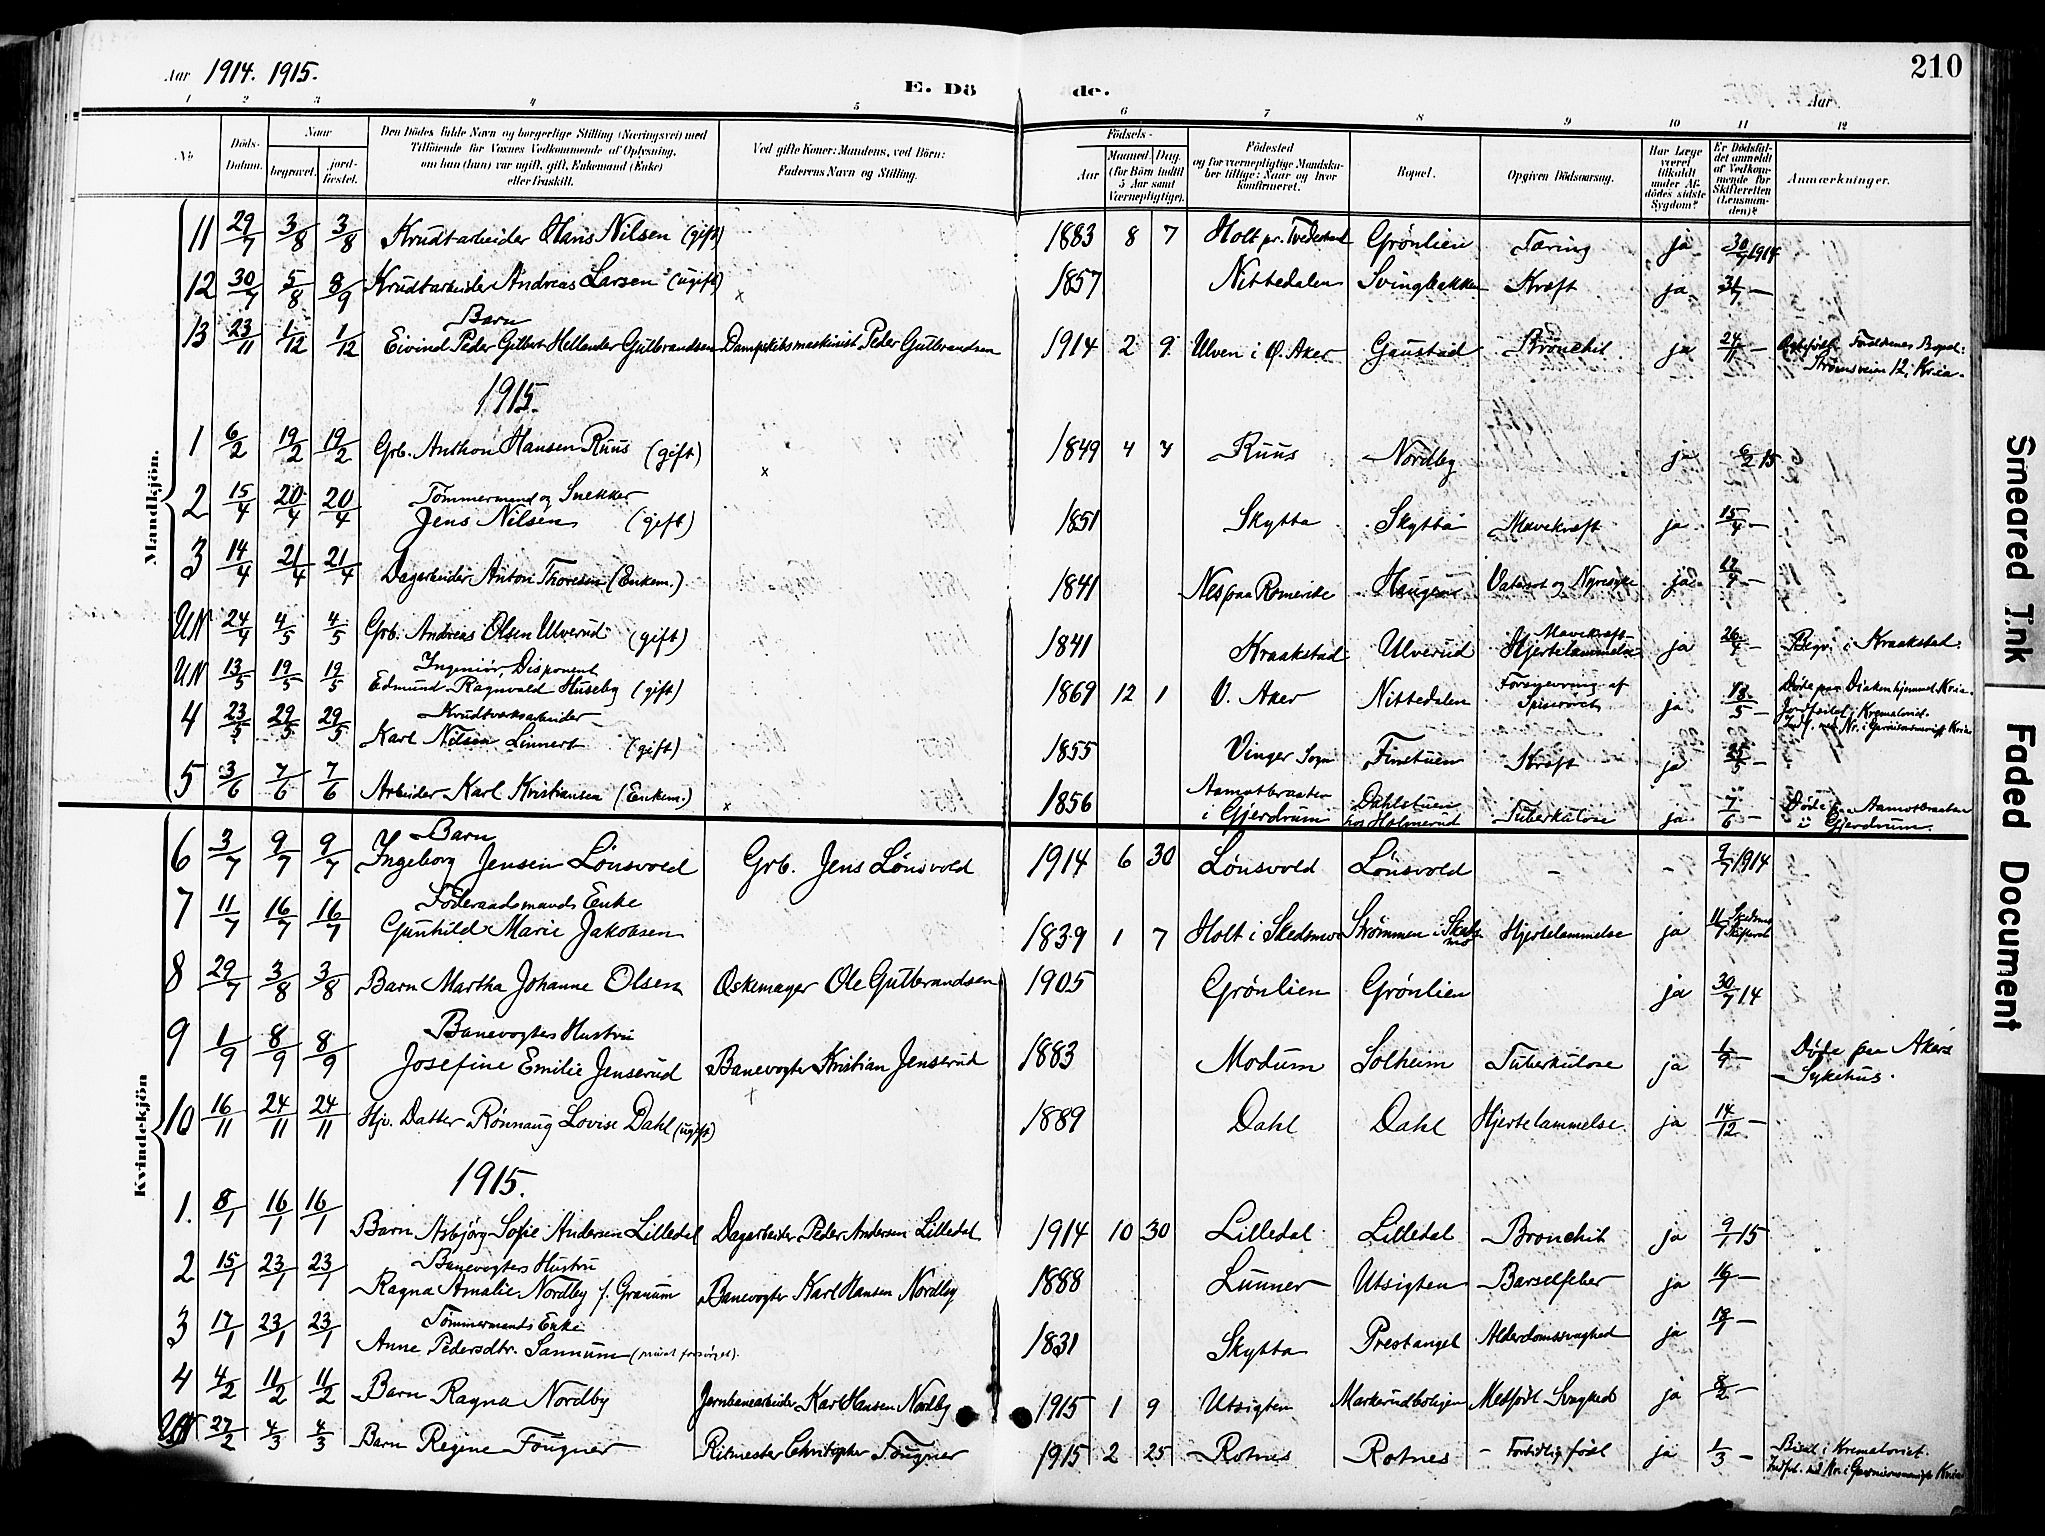 Aar 1914. 1915.
E. Dö de.
210
Aar
1 2 3 4 5 6 7 8 9 10 11 12
No
Döds-Datum.
Naar
begravet.
jord-fæstet.
Den Dödes fulde Navn og borgerlige Stilling (Næringsvei) med
Tilföiende for Voxnes Vedkommende af Oplysning,
om han (hun) var ugift, gift, Enkemand (Enke)
eller fraskilt.
Ved gifte Koner: Mandens, ved Börn:
Faderens Navn og Stilling.
Födsels-
Aar
Maaned. Dag.
(for Börn indtil
5 Aar samt
Værnepligtige).
Födested
og for værnepligtige Mandska-
ber tillige: Naar og hvor
konfirmeret.
Bopæl.
Opgiven Dödsaarsag.
Har Læge
været
tilkaldt
under Af-
dödes sidste
Sygdom?
Er Dödsfal-
det anmeldt
af Vedkom-
mende for
Skifteretten
(Lensman-
den)?
Anmærkninger.
Mandkjön.
11 29/7 3/8 3/8 Krudtarbeider Hans Nilsen (gift) 1883 8 7 Holt pr. Tvedestrand Grönlien Tæring ja 30/7 1914
12 30/7 5/8 8/9 Krudtarbeider Andreas Larsen (ugift) x 1857 Nittedalen Svingbakken Kræft ja 31/7 —
Barn
13 23/11 1/12 1/12 Eivind Peder Gilbert Hellander Gulbrandsen Dampskibsmaskinist Peder Gulbrandsen 1914 2 9 Ulven i Ø. Aker Gaustad Bronchit ja 24/11 — Forældrenes Bopæl:
Strömsveien 12, Kria.
1915.
1 6/2 19/2 19/2 Grb. Anthon Hansen Ruus (gift) x 1849 4 4 Ruus Nordby ja 6/2 15
Tömmermand og Snekker
2 15/4 20/4 20/4 Jens Nilsen (gift) 1851 Skytta Skytta Mavekræft ja 15/4 —
3 14/4 21/4 21/4 Dagarbeider Anton Thoresen (Enkem.) 1841 Nes paa Romerike Haugen Vatersot og Nyresyke ja 17/4 —
UN 24/4 4/5 4/5 Grb. Andreas Olsen Ulverud (gift) 1841 Kraakstad Ulverud Mavekræft
Hjertelammelse ja 26/4 — Begr. i Kraakstad.
Ingeniör, Disponent
UN 13/5 19/5 19/5 Edmund Ragnvald Huseby (gift) 1869 12 1 V. Aker Nittedalen Forsnevring af
Spiserøret ja 18/5 — Døde paa Diakonhjemmet Kria.
Jordfæstet i Krematoriet.
Indf. med Nr. i Garnisonsmgh. Kria
Krudtværksarbeider
4 23/5 29/5 29/5 Karl Nilsen Linnert (gift) 1855 Vinger Sogn Finstuen Kræft ja 25/5 —
5 3/6 7/6 7/6 Arbeider Karl Kristiansen (Enkem.) x 1856 Aamotbraaten
i Gjerdrum Dahlstuen
hos Holmerud Tuberkulose ja 7/6 — Döde p. Aamotbraaten
i Gjerdrum.
Kvindekjön
Barn
6 3/7 9/7 9/7 Ingeborg Jensen Lönsvold Grb. Jens Lönsvold 1914 6 30 Lönsvold Lönsvold – – 9/7 1914
Föderaadsmands Enke
7 11/7 16/7 16/7 Gunhild Marie Jakobsen 1839 1 7 Holt i Skedsmo Strømmen i Skeds-
mo Hjertelammelse ja 11/7 Skedsmo
Skifteret
8 29/7 3/8 3/8 Barn Martha Johanne Olsen Oskemager Ole Gulbrandsen 1905 Grönlien Grönlien ja 30/7 14
Banevogters Hustru
9 1/9 8/9 8/9 Josefine Emilie Jenserud Banevogter Kristian Jenserud x 1883 Modum Solheim Tuberkulose ja 1/9 — Døde paa Akers
Sykehus.
10 16/11 24/11 24/11 Hjv. Datter Rönnaug Lovise Dahl (ugift) 1889 Dahl Dahl Hjertelammelse ja 14/12 —
1915.
1. 8/1 16/1 16/1 Barn Asbjörg Sofie Andersen Lilledal Dagarbeider Peder Andersen Lilledal 1914 10 30 Lilledal Lilledal Bronchit ja 9/1 15
Banevogters Hustru
2 15/1 23/1 23/1 Ragna Amalie Nordby f. Granum Banevogter Karl Hansen Nordby 1888 Lunner Utsigten Barselfeber ja 16/1 —
Tömmermands Enke
3 17/1 23/1 23/1 Anne Pedersdtr. Sannum (privat forsörget). 1831 Skytta Prestangel Alderdomssvaghed ja 18/1 —
4 4/2 11/2 11/2 Barn Ragna Nordby Jernbanearbeider Karl Hansen Nordby 1915 1 9 Utsigten Markerudboligen Medfödt Svaghed ja 8/2 —
UN 27/2 4/3 4/3 Barn Regine Fougner Ritmester Christopher Fougner 1915 2 25 Rotnes Rotnes – Fortidlig födt ja 1/3 — Bisat i Krematoriet.
Indf. med Nr. i Garnisonsmgh. Kria
Smeared Ink
Faded Document